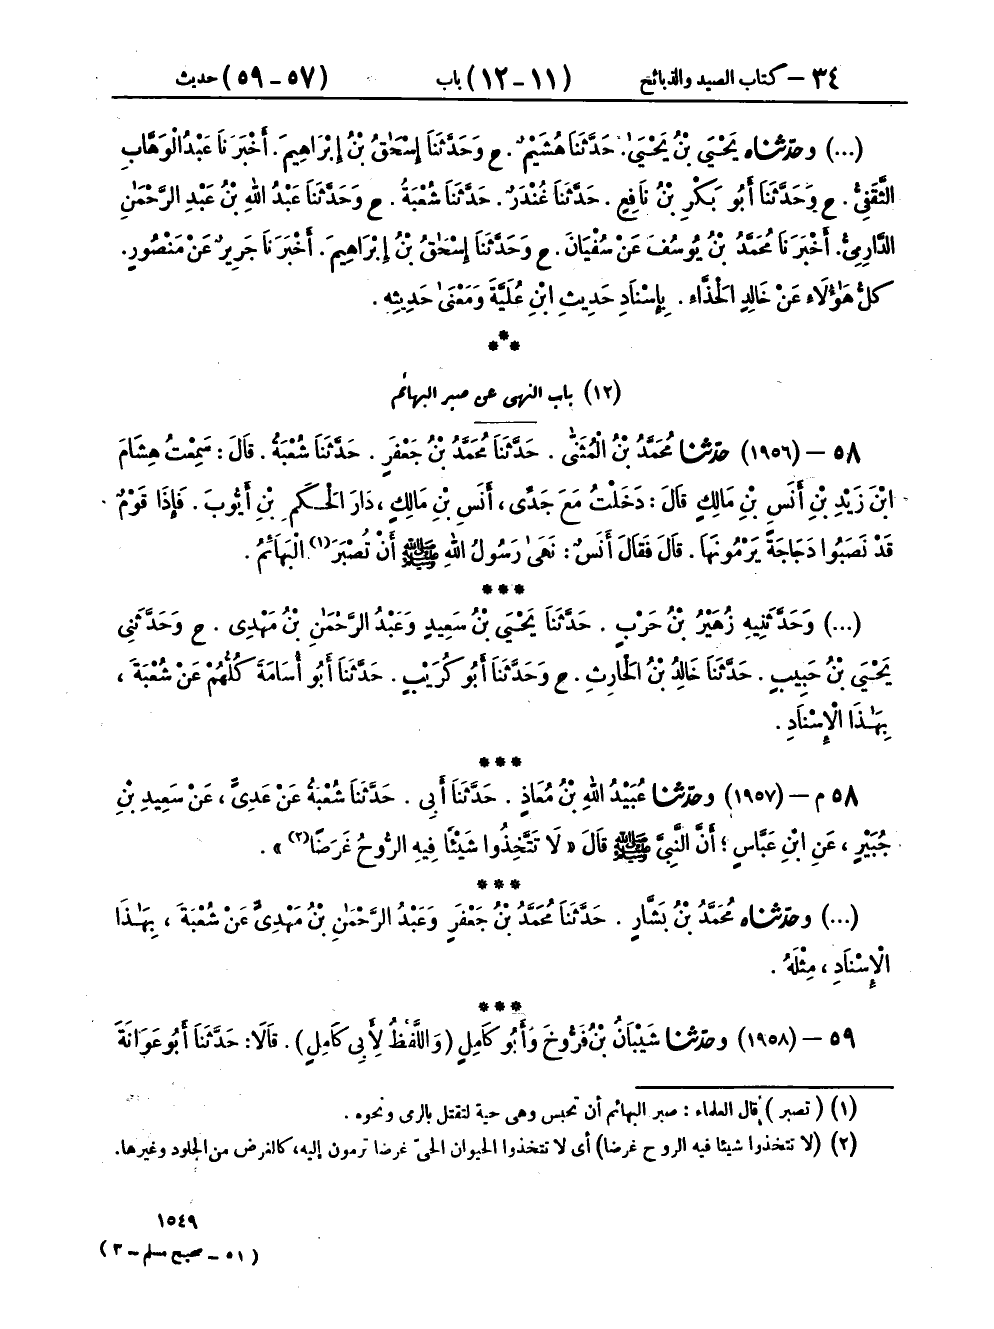 ٣٤ – كتاب الصيد والذبائح (١١ - ١٢) باب (٥٧ - ٥٩) حديث
(...) وحدّثناه يَحْيَى بْنُ يَحْيَىٰ. حَدَّثَنَا هُشَيْمٌ. ح وَحَدَّثَنَا إِسْحَٰقُ بْنُ إِبْرَاهِيمَ. أَخْبَرَنَا عَبْدُ الْوَهَّابِ
الثَّقَفِيُّ. ح وَحَدَّثَنَا أَبُو بَكْرِ بْنُ نَافِعٍ. حَدَّثَنَا غُنْدَرٌ. حَدَّثَنَا شُعْبَةُ. ح وَحَدَّثَنَا عَبْدُ اللهِ بْنُ عَبْدِ الرَّحْمَٰنِ
الدَّارِمِيُّ. أَخْبَرَنَا مُحَمَّدُ بْنُ يُوسُفَ عَنْ سُفْيَانَ. ح وَحَدَّثَنَا إِسْحَٰقُ بْنُ إِبْرَاهِيمَ. أَخْبَرَنَا جَرِيرٌ عَنْ مَنْصُورٍ.
كُلُّ هَٰؤُلَاءِ عَنْ خَالِدٍ الْحَذَّاءِ. بِإِسْنَادِ حَدِيثِ ابْنِ عُلَيَّةَ وَمَعْنَىٰ حَدِيثِهِ.
***
(١٢) باب النهى عن صبر البهائم
٥٨ – (١٩٥٦) حدّثنا مُحَمَّدُ بْنُ الْمُثَنَّىٰ. حَدَّثَنَا مُحَمَّدُ بْنُ جَعْفَرٍ. حَدَّثَنَا شُعْبَةُ. قَالَ: سَمِعْتُ هِشَامَ
ابْنَ زَيْدِ بْنِ أَنَسِ بْنِ مَالِكٍ قَالَ: دَخَلْتُ مَعَ جَدِّى، أَنَسِ بْنِ مَالِكٍ، دَارَ الْحَكَمِ بْنِ أَيُّوبَ. فَإِذَا قَوْمٌ
قَدْ نَصَبُوا دَجَاجَةً يَرْمُونَهَا. قَالَ فَقَالَ أَنَسٌ: نَهَىٰ رَسُولُ اللهِ ﷺ أَنْ تُصْبَرَ(١) الْبَهَائِمُ.
***
(...) وَحَدَّثَنِيهِ زُهَيْرُ بْنُ حَرْبٍ. حَدَّثَنَا يَحْيَى بْنُ سَعِيدٍ وَعَبْدُ الرَّحْمَٰنِ بْنُ مَهْدِى. ح وَحَدَّثَنِى
يَحْيَى بْنُ حَبِيبٍ. حَدَّثَنَا خَالِدُ بْنُ الْحَارِثِ. ح وَحَدَّثَنَا أَبُو كُرَيْبٍ. حَدَّثَنَا أَبُو أُسَامَةَ كُلُّهُمْ عَنْ شُعْبَةَ،
بِهَٰذَا الْإِسْنَادِ.
***
٥٨ م – (١٩٥٧) وحدّثنا عُبَيْدُ اللهِ بْنُ مُعَاذٍ. حَدَّثَنَا أَبِى. حَدَّثَنَا شُعْبَةُ عَنْ عَدِىٍّ، عَنْ سَعِيدِ بْنِ
جُبَيْرٍ، عَنِ ابْنِ عَبَّاسٍ؛ أَنَّ النَّبِىَّ ﷺ قَالَ « لَا تَتَّخِذُوا شَيْئًا فِيهِ الرُّوحُ غَرَضًا(٢) ».
***
(...) وحدّثناه مُحَمَّدُ بْنُ بَشَّارٍ. حَدَّثَنَا مُحَمَّدُ بْنُ جَعْفَرٍ وَعَبْدُ الرَّحْمَٰنِ بْنُ مَهْدِىٍّ عَنْ شُعْبَةَ، بِهَٰذَا
الْإِسْنَادِ، مِثْلَهُ.
***
٥٩ – (١٩٥٨) وحدّثنا شَيْبَانُ بْنُ فَرُّوخَ وَأَبُو كَامِلٍ (وَاللَّفْظُ لِأَبِى كَامِلٍ). قَالَا: حَدَّثَنَا أَبُو عَوَانَةَ
(١) (تصبر) قال العلماء: صبر البهائم أن تحبس وهى حية لتقتل بالرمى ونحوه.
(٢) (لا تتخذوا شيئا فيه الروح غرضا) أى لا تتخذوا الحيوان الحىّ غرضا ترمون إليه، كالغرض من الجلود وغيرها.
١٥٤٩
(٥١ – صحيح مسلم – ٣)